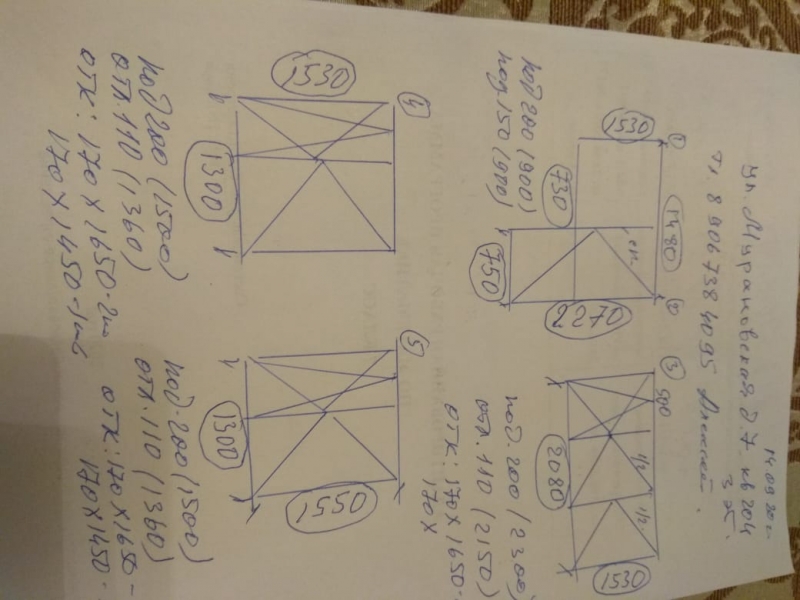 14.09.20г.
ул. Мурановская, д. 7. кв 204
3 эт.
т. 8 906 738 40 95 Алексей.
①
②
1530
1480
730
750
2270
под 200 (900)
под. 150 (900)
③
500
1/2
1/2
2080
1530
под. 200 (2300)
отл. 110 (2150)
отк: 170 х 1650.
170 х
④
1530
1300
под 200 (1500)
отл. 110 (1360)
отк: 170 х 1650-2шт
170 х 1450-1шт
⑤
1300
1550
под-200 (1500)
отл. 110 (1360)
отк: 170 х 1650-
170 х 1450.